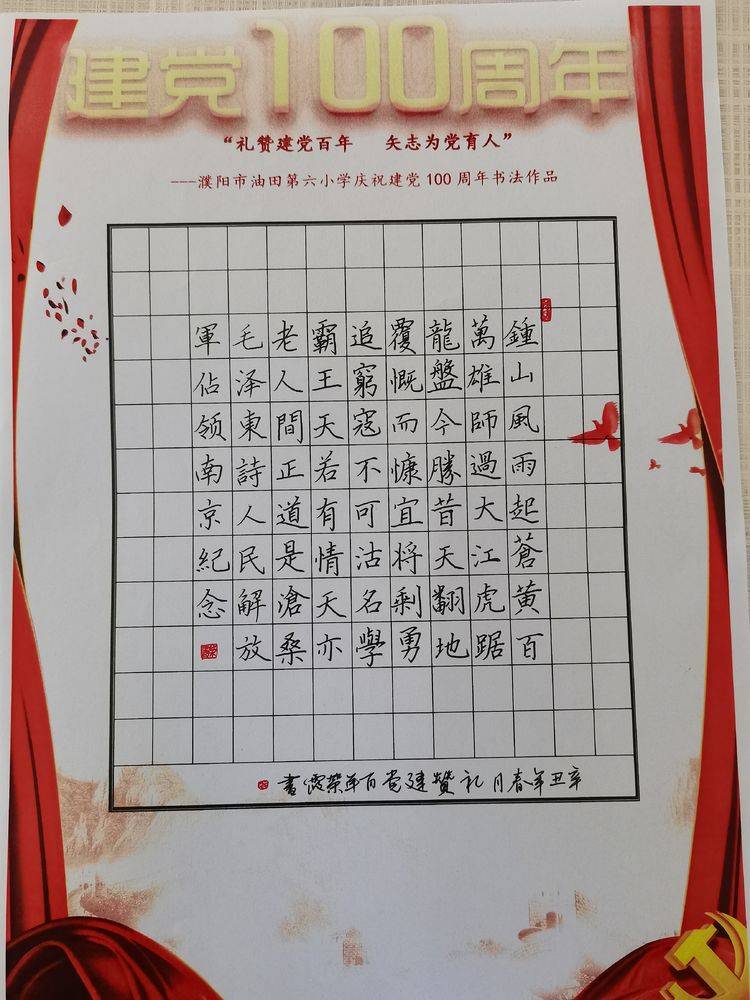 建党100周年
“礼赞建党百年 矢志为党育人”
---濮阳市油田第六小学庆祝建党100周年书法作品
鍾山風雨起蒼黄百
萬雄師過大江虎踞
龍盤今勝昔天翻地
覆慨而慷宜将剩勇
追窮寇不可沽名學
霸王天若有情天亦
老人間正道是滄桑
毛泽東詩人民解放
軍佔领南京紀念
辛丑年春月礼贊建党百年荣霞書